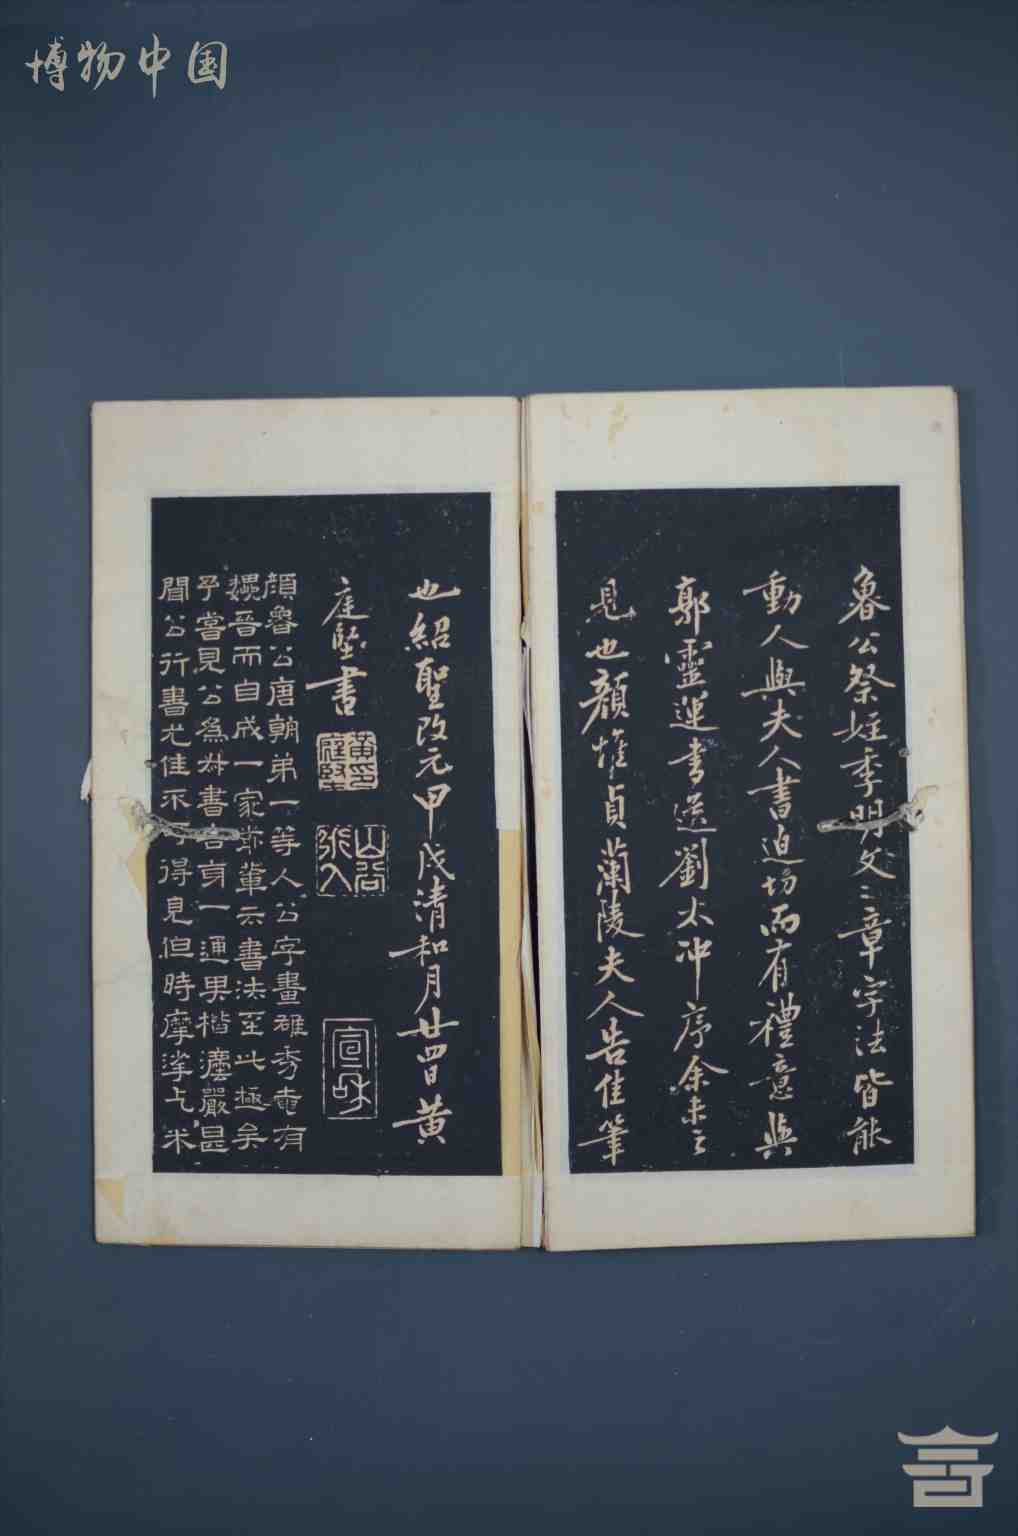 博物中国
魯公祭姪季明文三章字法皆能
動人與夫人書迫切而有禮意與
郭靈運書送劉太冲序余未之
見也顏惟貞蘭陵夫人告佳筆
也紹聖改元甲戌清和月廿四日黃
庭堅書
黃氏庭堅
山谷
宣和
顏魯公唐朝弟一等人公字畫雄秀奄有
魏晉而自成一家前輩云書法至此極矣
予嘗見公為書告身一通果楷灋嚴甚
間公行書尤佳不可得見但時摩挲上米